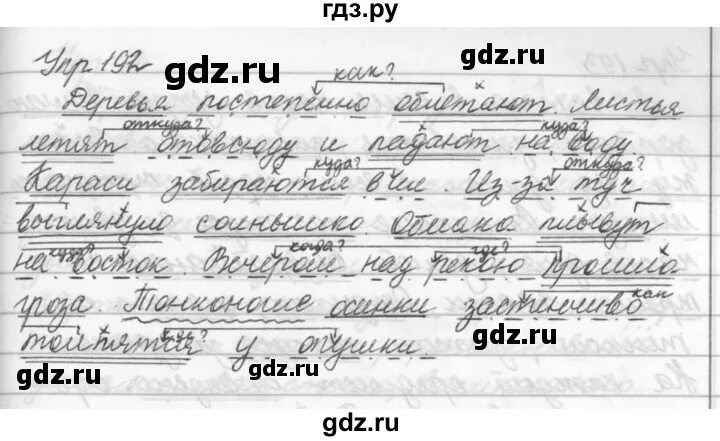 гдз.ру
Упр 192
gdz.ru gdz.ru
как?
Деревья постепенно облетают. Листья
откуда? куда?
летят отовсюду и падают на саду.
куда? откуда?
Караси забираются в ил. Из-за туч
выглянуло солнышко. Облака плывут
gdz.ru gdz.ru
куда? когда? где?
на восток. Вечером над рекою прошла
гроза. Тонконогие осинки застенчиво как
gdz.ru gdz.ru
где?
толпятся у опушки.
gdz.ru